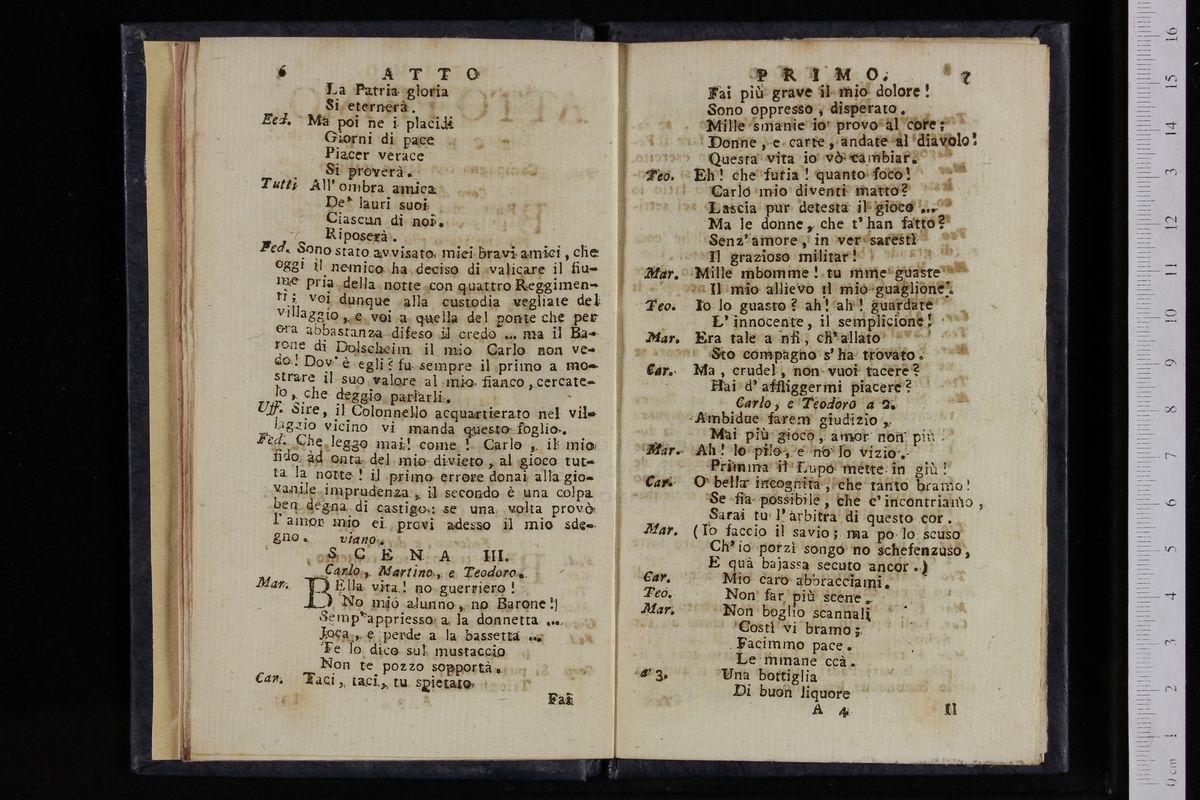 6 ATTO
La Patria gloria
Si eternerà.
Fed. Ma poi ne i placidi
Giorni di pace
Piacer verace
Si proverà.
Tutti All' ombra amica
De' lauri suoi
Ciascun di noi.
Riposerà.
Fed. Sono stato avvisato miei bravi amici, che
oggi il nemico ha deciso di valicare il fiu-
me pria della notte con quattro Reggimen-
ti; voi dunque alla custodia vegliate del
villaggio, e voi a quella del ponte che per
ora abbastanza difeso il credo ... ma il Ba-
rone di Dolscheim il mio Carlo non ve-
do! Dov' è egli? fu sempre il primo a mo-
strare il suo valore al mio fianco, cercate-
lo, che deggio parlarli.
Uff. Sire, il Colonnello acquartierato nel vil-
laggio vicino vi manda questo foglio.
Fed. Che leggo mai! come! Carlo, il mio
fido ad onta del mio divieto, al gioco tut-
ta la notte! il primo errore donai alla gio-
vanile imprudenza, il secondo è una colpa
ben degna di castigo: se una volta provò
l' amor mio ei provi adesso il mio sde-
gno. viano.
SCENA III.
Carlo, Martino, e Teodoro.
Mar. BElla vita! no guerriero!
No mio alunno, no Barone!
Semp' appriesso a la donnetta ...
Joca, e perde a la bassetta ...
Te lo dico sul mustaccio
Non te pozzo sopportà.
Car. Taci, taci, tu spietato
Fai
PRIMO. 7
Fai più grave il mio dolore!
Sono oppresso, disperato.
Mille smanie io provo al core;
Donne, e carte, andate al diavolo!
Questa vita io vò cambiar.
Teo. Eh! che furia! quanto foco!
Carlo mio diventi matto?
Lascia pur detesta il gioco ...
Ma le donne, che t' han fatto?
Senz' amore, in ver saresti
Il grazioso militar!
Mar. Mille mbomme! tu mme guaste
Il mio allievo il mio guaglione!
Teo. Io lo guasto? ah! ah! guardate
L' innocente, il semplicione!
Mar. Era tale a nfi, ch' allato
Sto compagno s' ha trovato.
Car. Ma, crudel, non vuoi tacere?
Hai d' affliggermi piacere?
Carlo, e Teodoro a 2.
Ambidue farem giudizio,
Mai più gioco, amor non più
Mar. Ah! lo pilo, e nò lo vizio.
Primma il Lupo mette in giù!
Car. O bella incognita, che tanto bramo!
Se fia possibile, che c' incontriamo,
Sarai tu l' arbitra di questo cor.
Mar. (Io faccio il savio; ma po lo scuso
Ch' io porzì songo no schefenzuso,
E quà bajassa secuto ancor.)
Car. Mio caro abbracciami.
Teo. Non far più scene.
Mar. Non boglio scannali
Costì vi bramo;
Facimmo pace.
Le mmane ccà.
a 3. Una bottiglia
Di buon liquore
A 4 Il